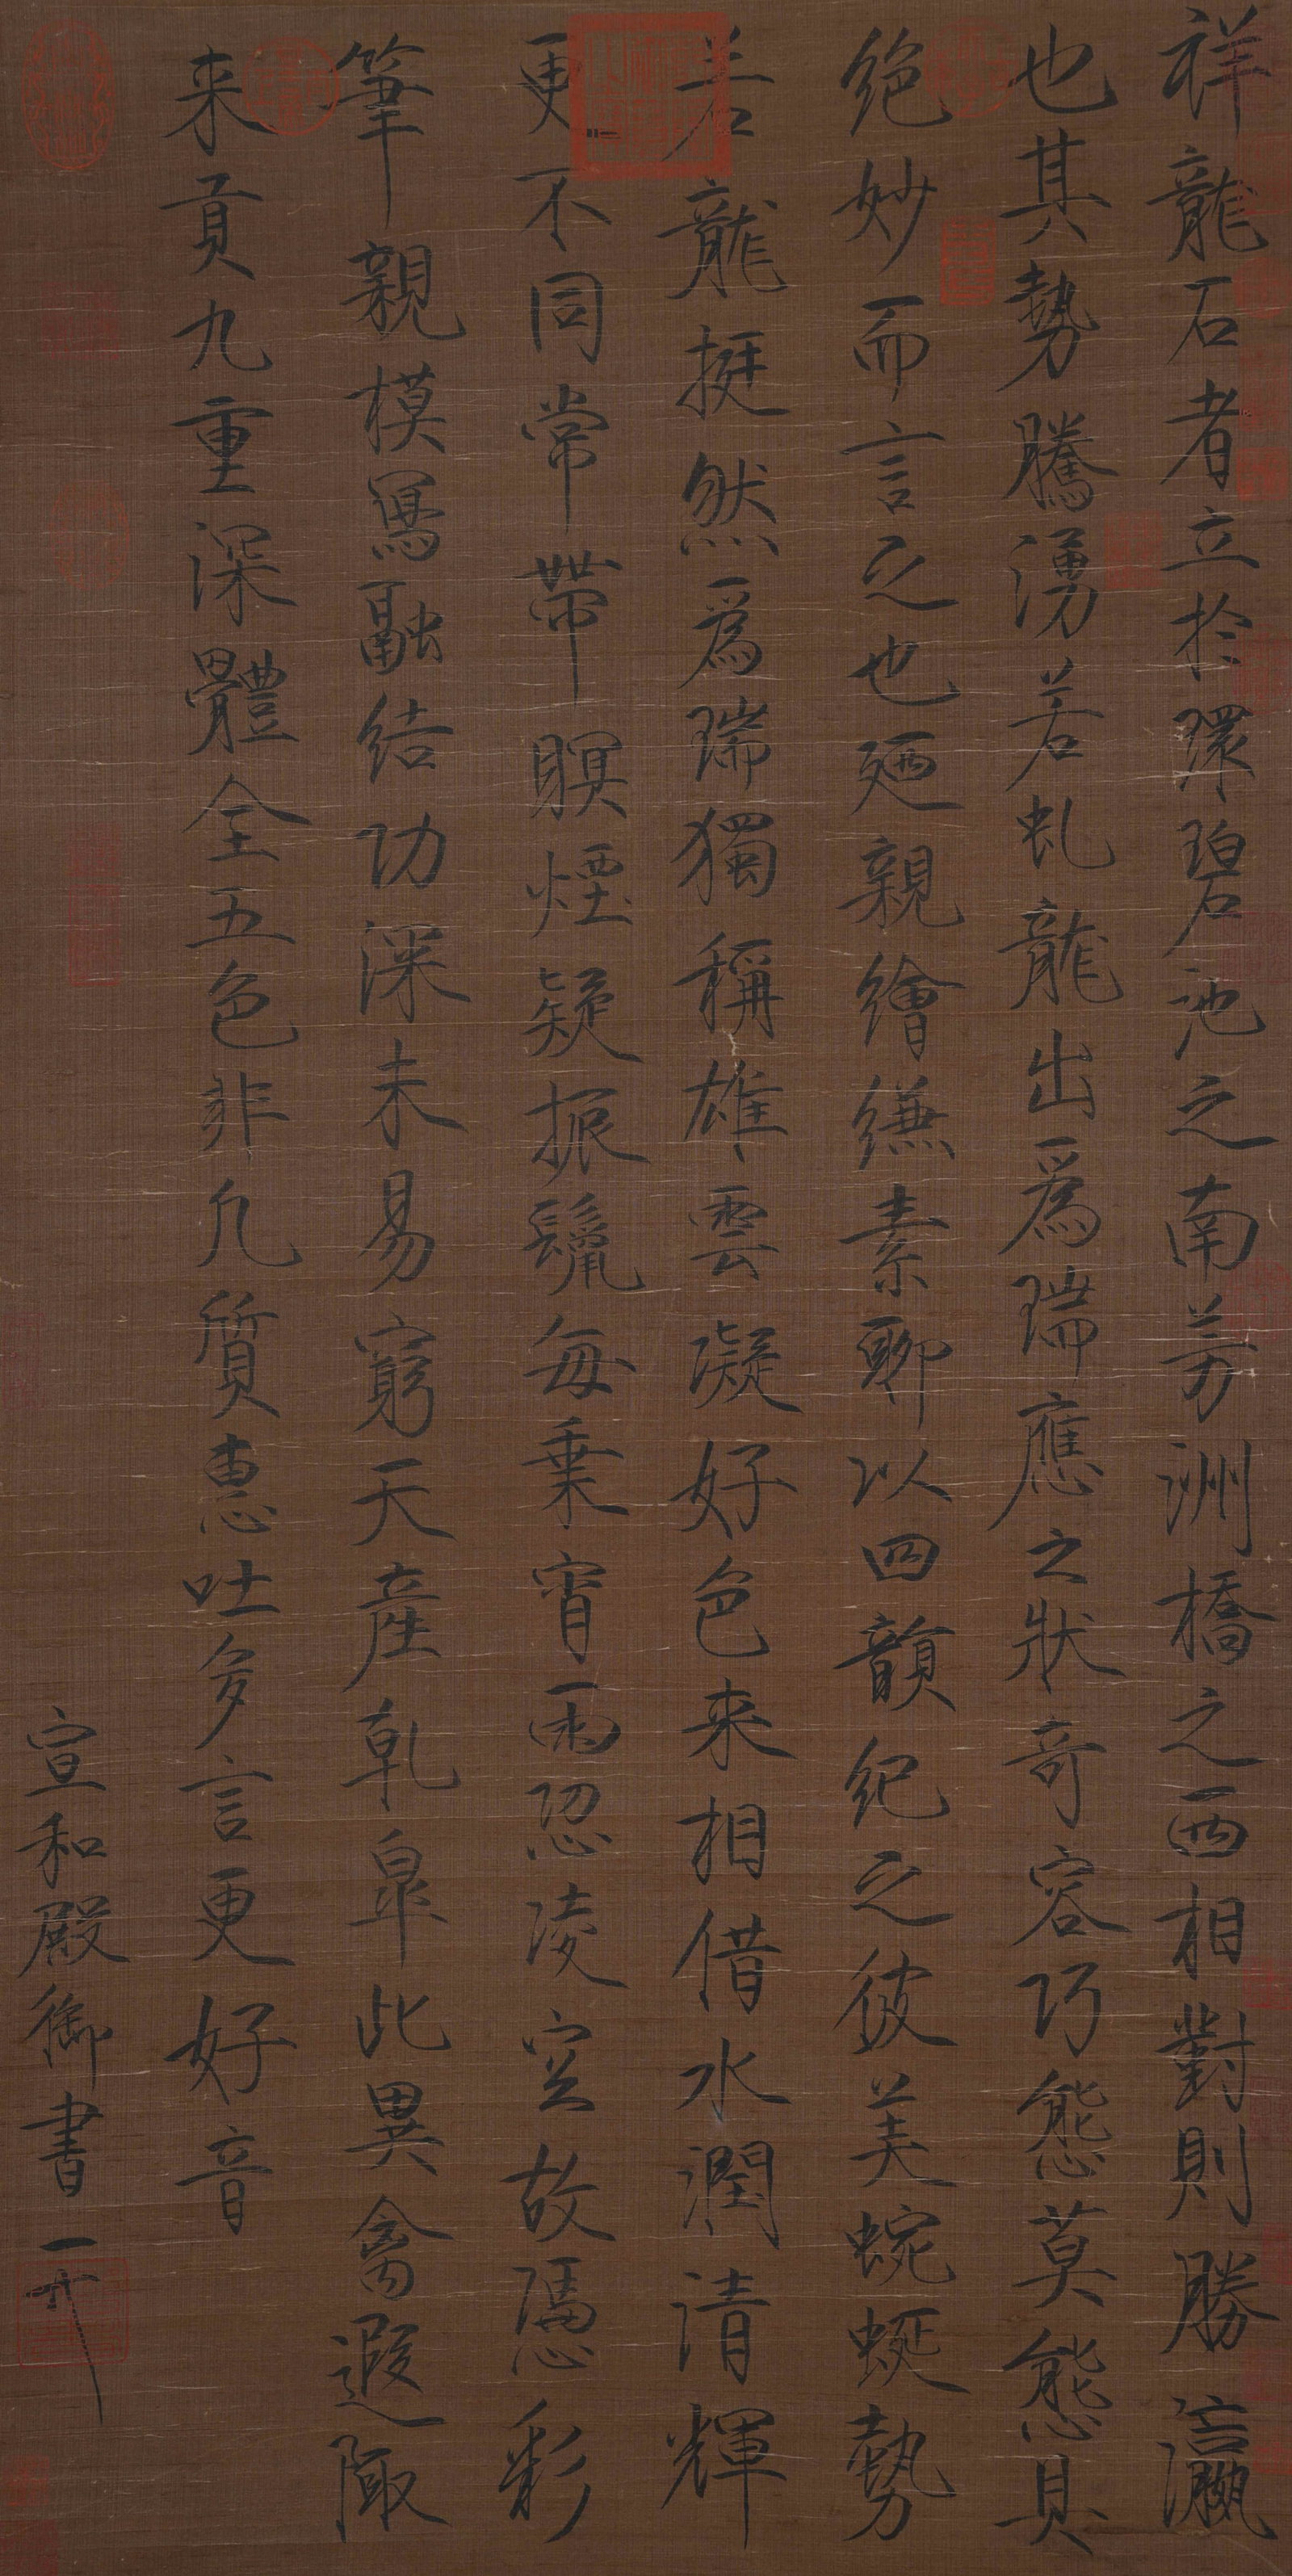 祥龍石者立於環碧池之南芳洲橋之西相對則勝瀛
也其勢騰湧若虬龍出爲瑞應之狀奇容巧態莫能具
絶妙而言之也廼親繪縑素聊以四韻紀之彼美蜿蜒勢
若龍挺然爲瑞獨稱雄雲凝好色来相借水潤清輝
更不同常帶瞑煙疑振鬣每乗宵雨恐凌空故憑彩
筆親模冩融结功深未易窮天産乹皐此異禽遐陬
来貢九重深體全五色非凢質惠吐多言更好音
宣和殿御書